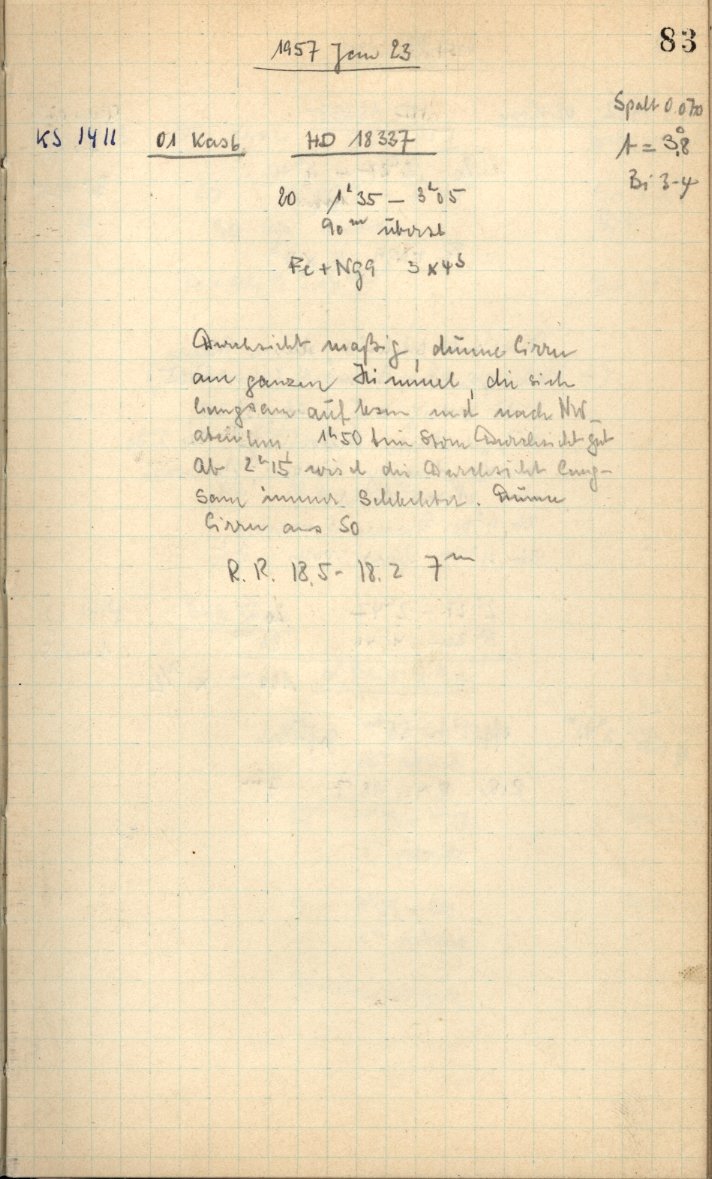 83
1957 Jan 23
Spalt 0.070
KS 1411 01 Kasb HD 18337
t = 3°.8
Bi 3-4
20 1h35 — 3h05
90m überbel
Fe + Ng9 3 x 4s
Durchsicht mäßig, dünne Cirren
am ganzen Himmel, die sich
langsam auflösen und nach NW
abziehen. 1h50 beim Stern Durchsicht gut
Ab 2h15 wird die Durchsicht lang-
sam immer schlechter. Dünne
Cirren aus SO
R.R. 18.5 - 18.2 7m